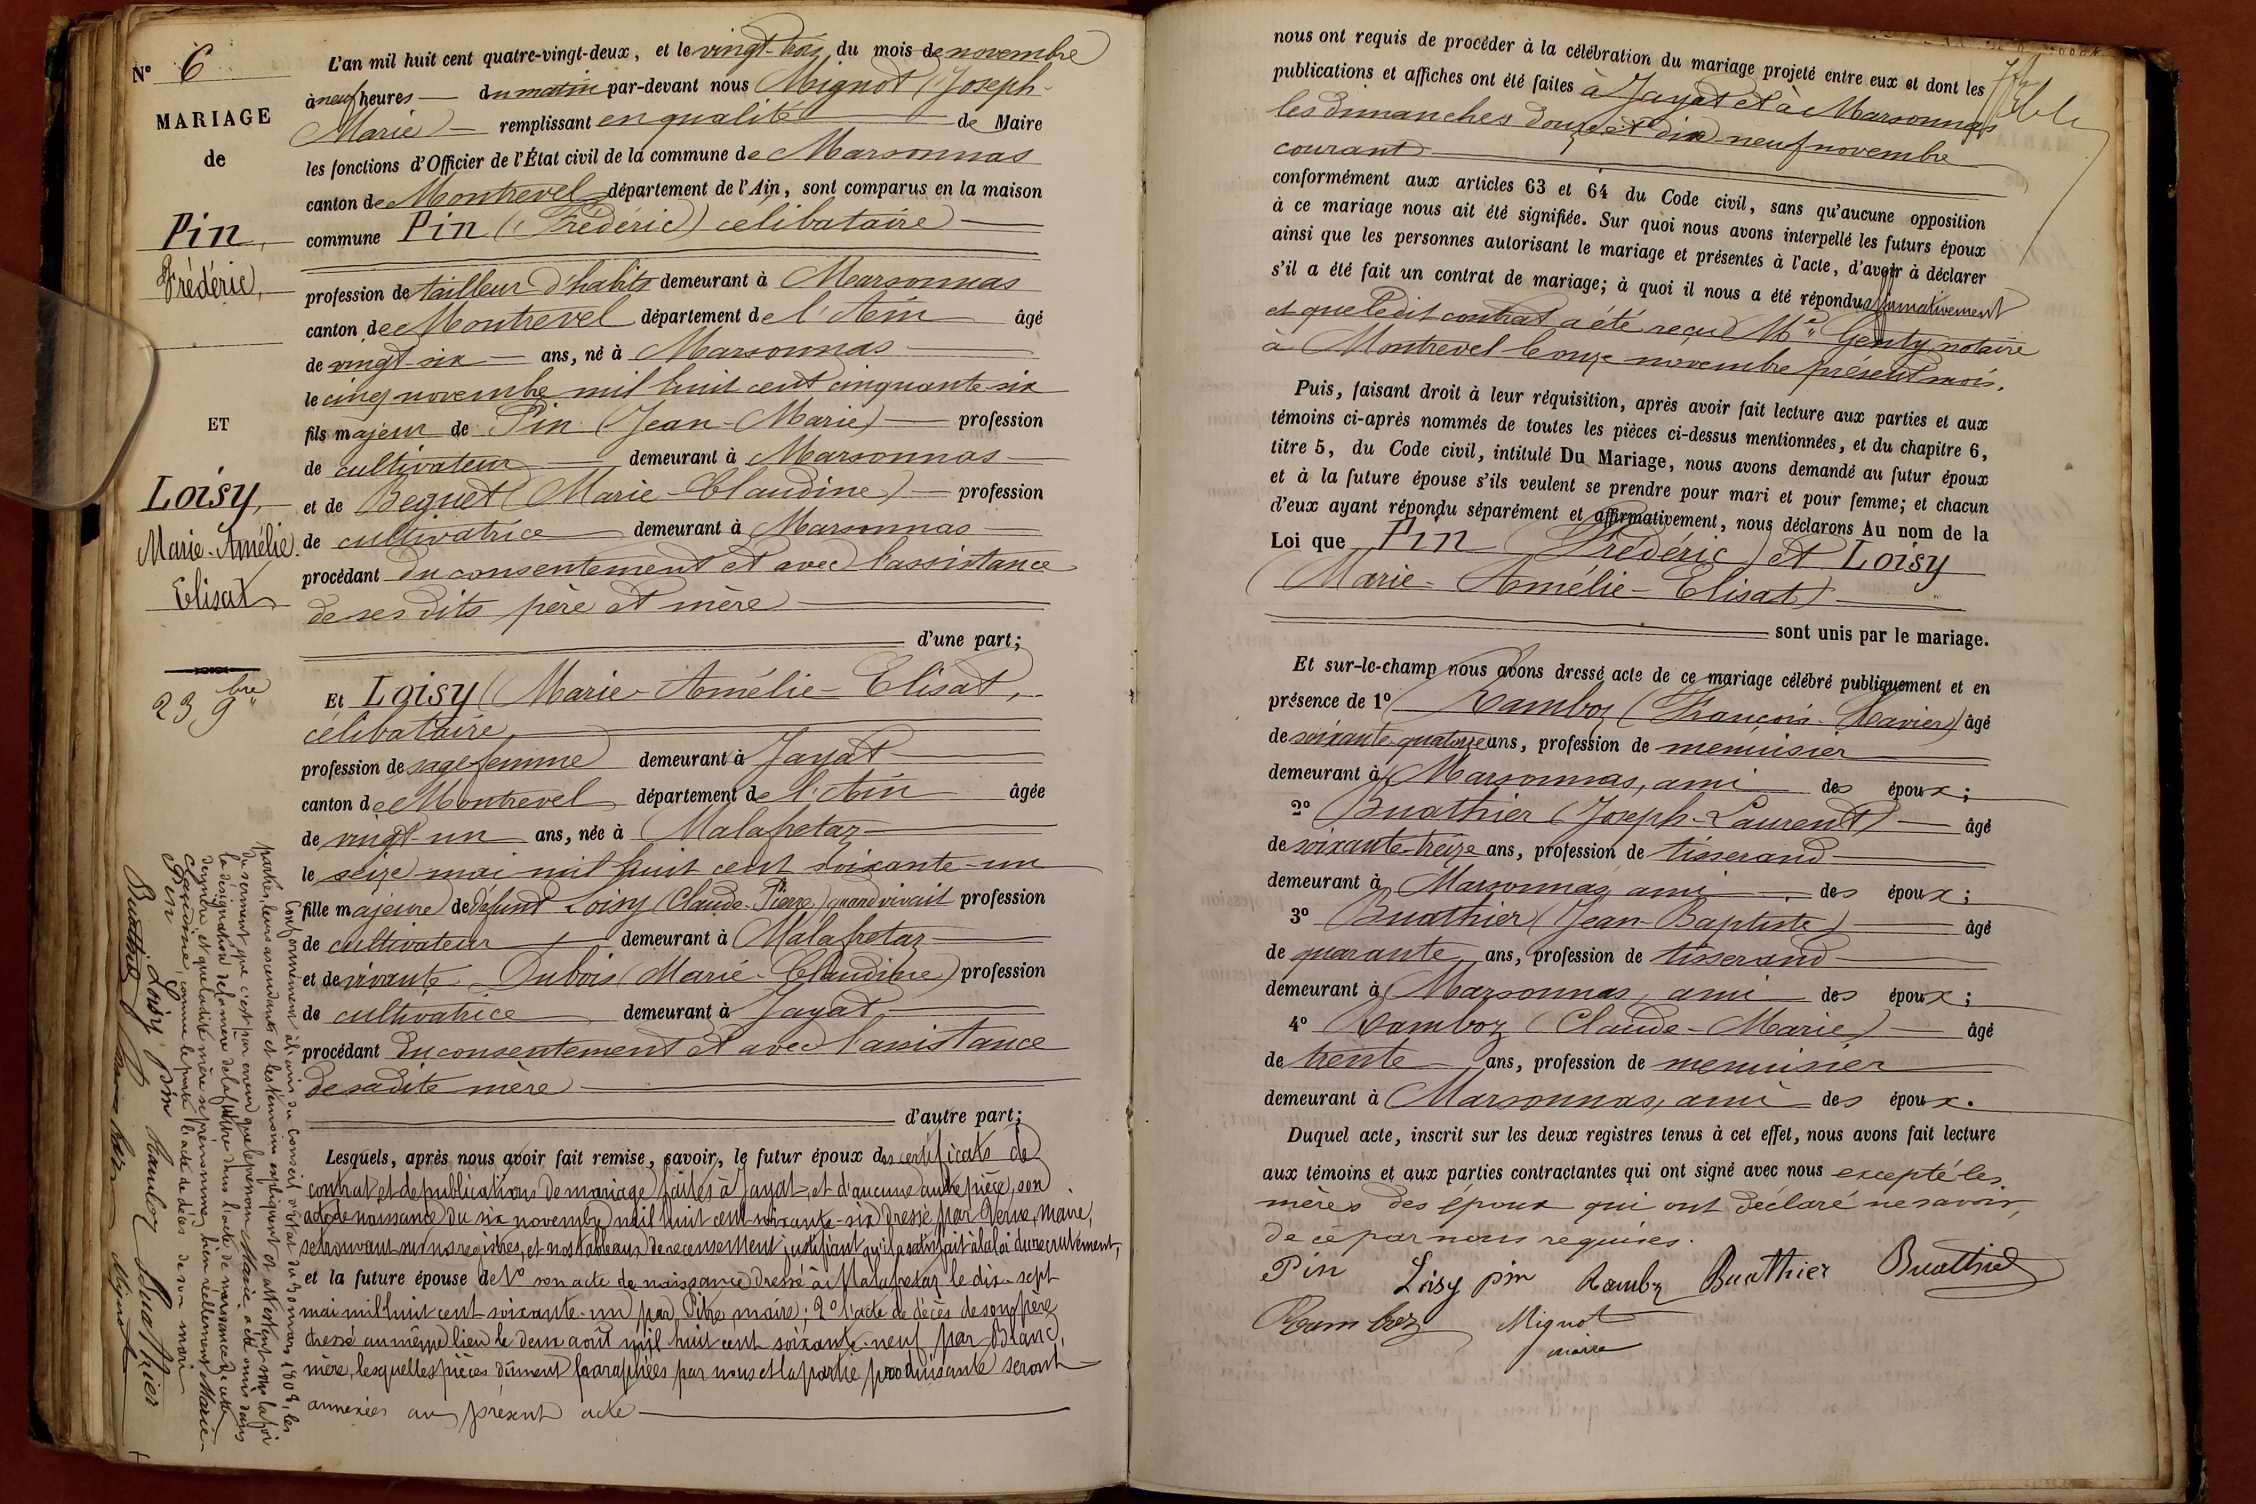 N° 6
MARIAGE
de
Pin,
Frédéric,
ET
Loisy,
Marie-Amélie
Elisat
23 9bre
L'an mil huit cent quatre-vingt-deux, et le vingt-trois du mois de novembre
à neuf heures du matin par-devant nous Mignot (Joseph-
Marie) remplissant en qualité de Maire
les fonctions d'Officier de l'État civil de la commune de Marsonnas
canton de Montrevel département de l'Ain, sont comparus en la maison
commune Pin (Frédéric) célibataire
profession de tailleur d'habits demeurant à Marsonnas
canton de Montrevel département de l'Ain âgé
de vingt-six ans, né à Marsonnas
le cinq novembre mil huit cent cinquante-six
fils majeur de Pin (Jean-Marie) profession
de cultivateur demeurant à Marsonnas
et de Beguet (Marie-Claudine) profession
de cultivatrice demeurant à Marsonnas
procédant du consentement et avec l'assistance
de ses dits père et mère
d'une part;
Et Loisy (Marie-Amélie-Elisat,
célibataire
profession de sage femme demeurant à Jayat
canton de Montrevel département de l'Ain âgée
de vingt-un ans, née à Malafretaz
le seize mai mil huit cent soixante-un
fille majeure de défunt Loisy (Claude-Pierre) quand vivait profession
de cultivateur demeurant à Malafretaz
et de vivante Dubois (Marie-Claudine) profession
de cultivatrice demeurant à Jayat
procédant du consentement et avec l'assistance
de sa dite mère
d'autre part;
Lesquels, après nous avoir fait remise, savoir, le futur époux des certificats de
contrat et de publications de mariage faites à Jayat, et d'aucune autre pièce, son
acte de naissance du six novembre mil huit cent cinquante-six dressé par Verne, maire,
se trouvant sur nos registres, et nos tableaux de recensement justifiant qu'il a satisfait à la loi du recrutement,
et la future épouse de 1° son acte de naissance dressé à Malafretaz le dix-sept
mai mil huit cent soixante-un par Pitre maire; 2° l'acte de décès de son père
dressé au même lieu le deux août mil huit cent soixante-neuf par Blanc,
mère, lesquelles pièces dûment paraphées par nous et la partie produisante seront
annexées au présent acte
Conformément à l'avis du Conseil d'état du 30 mars 1808, les
parties, leurs ascendants et les témoins expliquent et attestent sous la foi
du serment que c'est par erreur que le prénom Marie a été omis dans
la désignation de la mère de la future dans l'acte de naissance de cette
dernière, et que ladite mère se prénomme bien réellement Marie-
Claudine, comme le porte l'acte de décès de son mari
Pin Loisy pin Ramboz Buathier
Buathier Mignot
nous ont requis de procéder à la célébration du mariage projeté entre eux et dont les
publications et affiches ont été faites à Jayat et à Marsonnas
les dimanches douze et dix-neuf novembre
courant
conformément aux articles 63 et 64 du Code civil, sans qu'aucune opposition
à ce mariage nous ait été signifiée. Sur quoi nous avons interpellé les futurs époux
ainsi que les personnes autorisant le mariage et présentes à l'acte, d'avoir à déclarer
s'il a été fait un contrat de mariage; à quoi il nous a été répondu affirmativement
et que le dit contrat a été reçu Me Genty notaire
à Montrevel le onze novembre présent mois.
Puis, faisant droit à leur réquisition, après avoir fait lecture aux parties et aux
témoins ci-après nommés de toutes les pièces ci-dessus mentionnées, et du chapitre 6,
titre 5, du Code civil, intitulé Du Mariage, nous avons demandé au futur époux
et à la future épouse s'ils veulent se prendre pour mari et pour femme; et chacun
d'eux ayant répondu séparément et affirmativement, nous déclarons Au nom de la
Loi que Pin (Frédéric) et Loisy
(Marie-Amélie-Elisat)
sont unis par le mariage.
Et sur-le-champ nous avons dressé acte de ce mariage célébré publiquement et en
présence de 1° Ramboz (François-Xavier) âgé
de soixante-quatorze ans, profession de menuisier
demeurant à Marsonnas, ami des époux;
2° Buathier (Joseph-Laurent) âgé
de soixante-treize ans, profession de tisserand
demeurant à Marsonnas, ami des époux;
3° Buathier (Jean-Baptiste) âgé
de quarante ans, profession de tisserand
demeurant à Marsonnas, ami des époux;
4° Ramboz (Claude-Marie) âgé
de trente ans, profession de menuisier
demeurant à Marsonnas, ami des époux.
Duquel acte, inscrit sur les deux registres tenus à cet effet, nous avons fait lecture
aux témoins et aux parties contractantes qui ont signé avec nous excepté les
mères des époux qui ont déclaré ne savoir,
de ce par nous requises.
Pin Loisy pin Rambz Buathier Buathier
Ramboz Mignot
maire